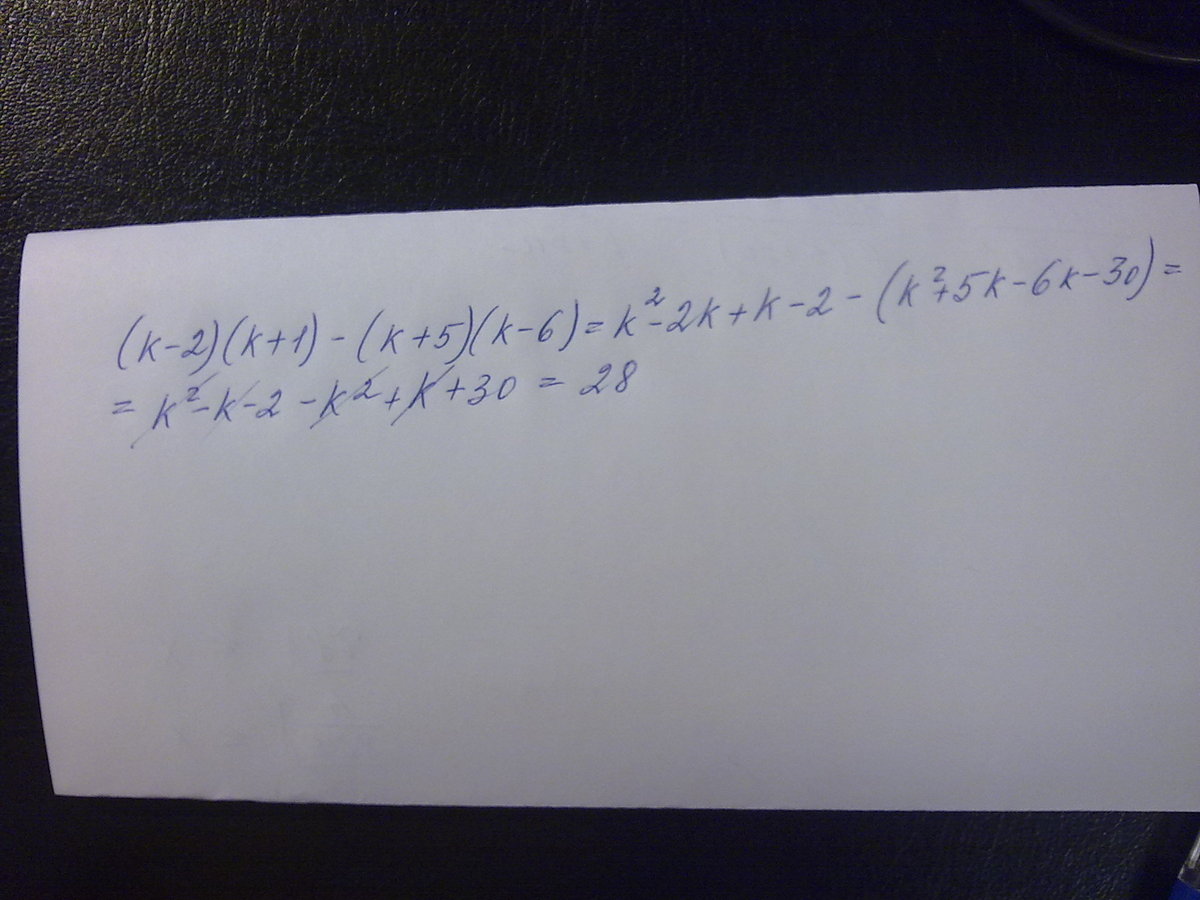 (k-2)(k+1) - (k+5)(k-6) = k²-2k+k-2-(k²+5k-6k-30) =
= k²-k-2-k²+k+30 = 28